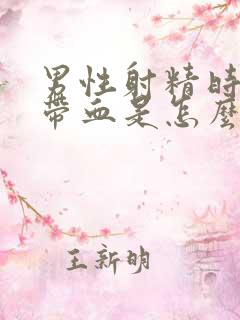 男性射精時
帶血是怎麼
王新明